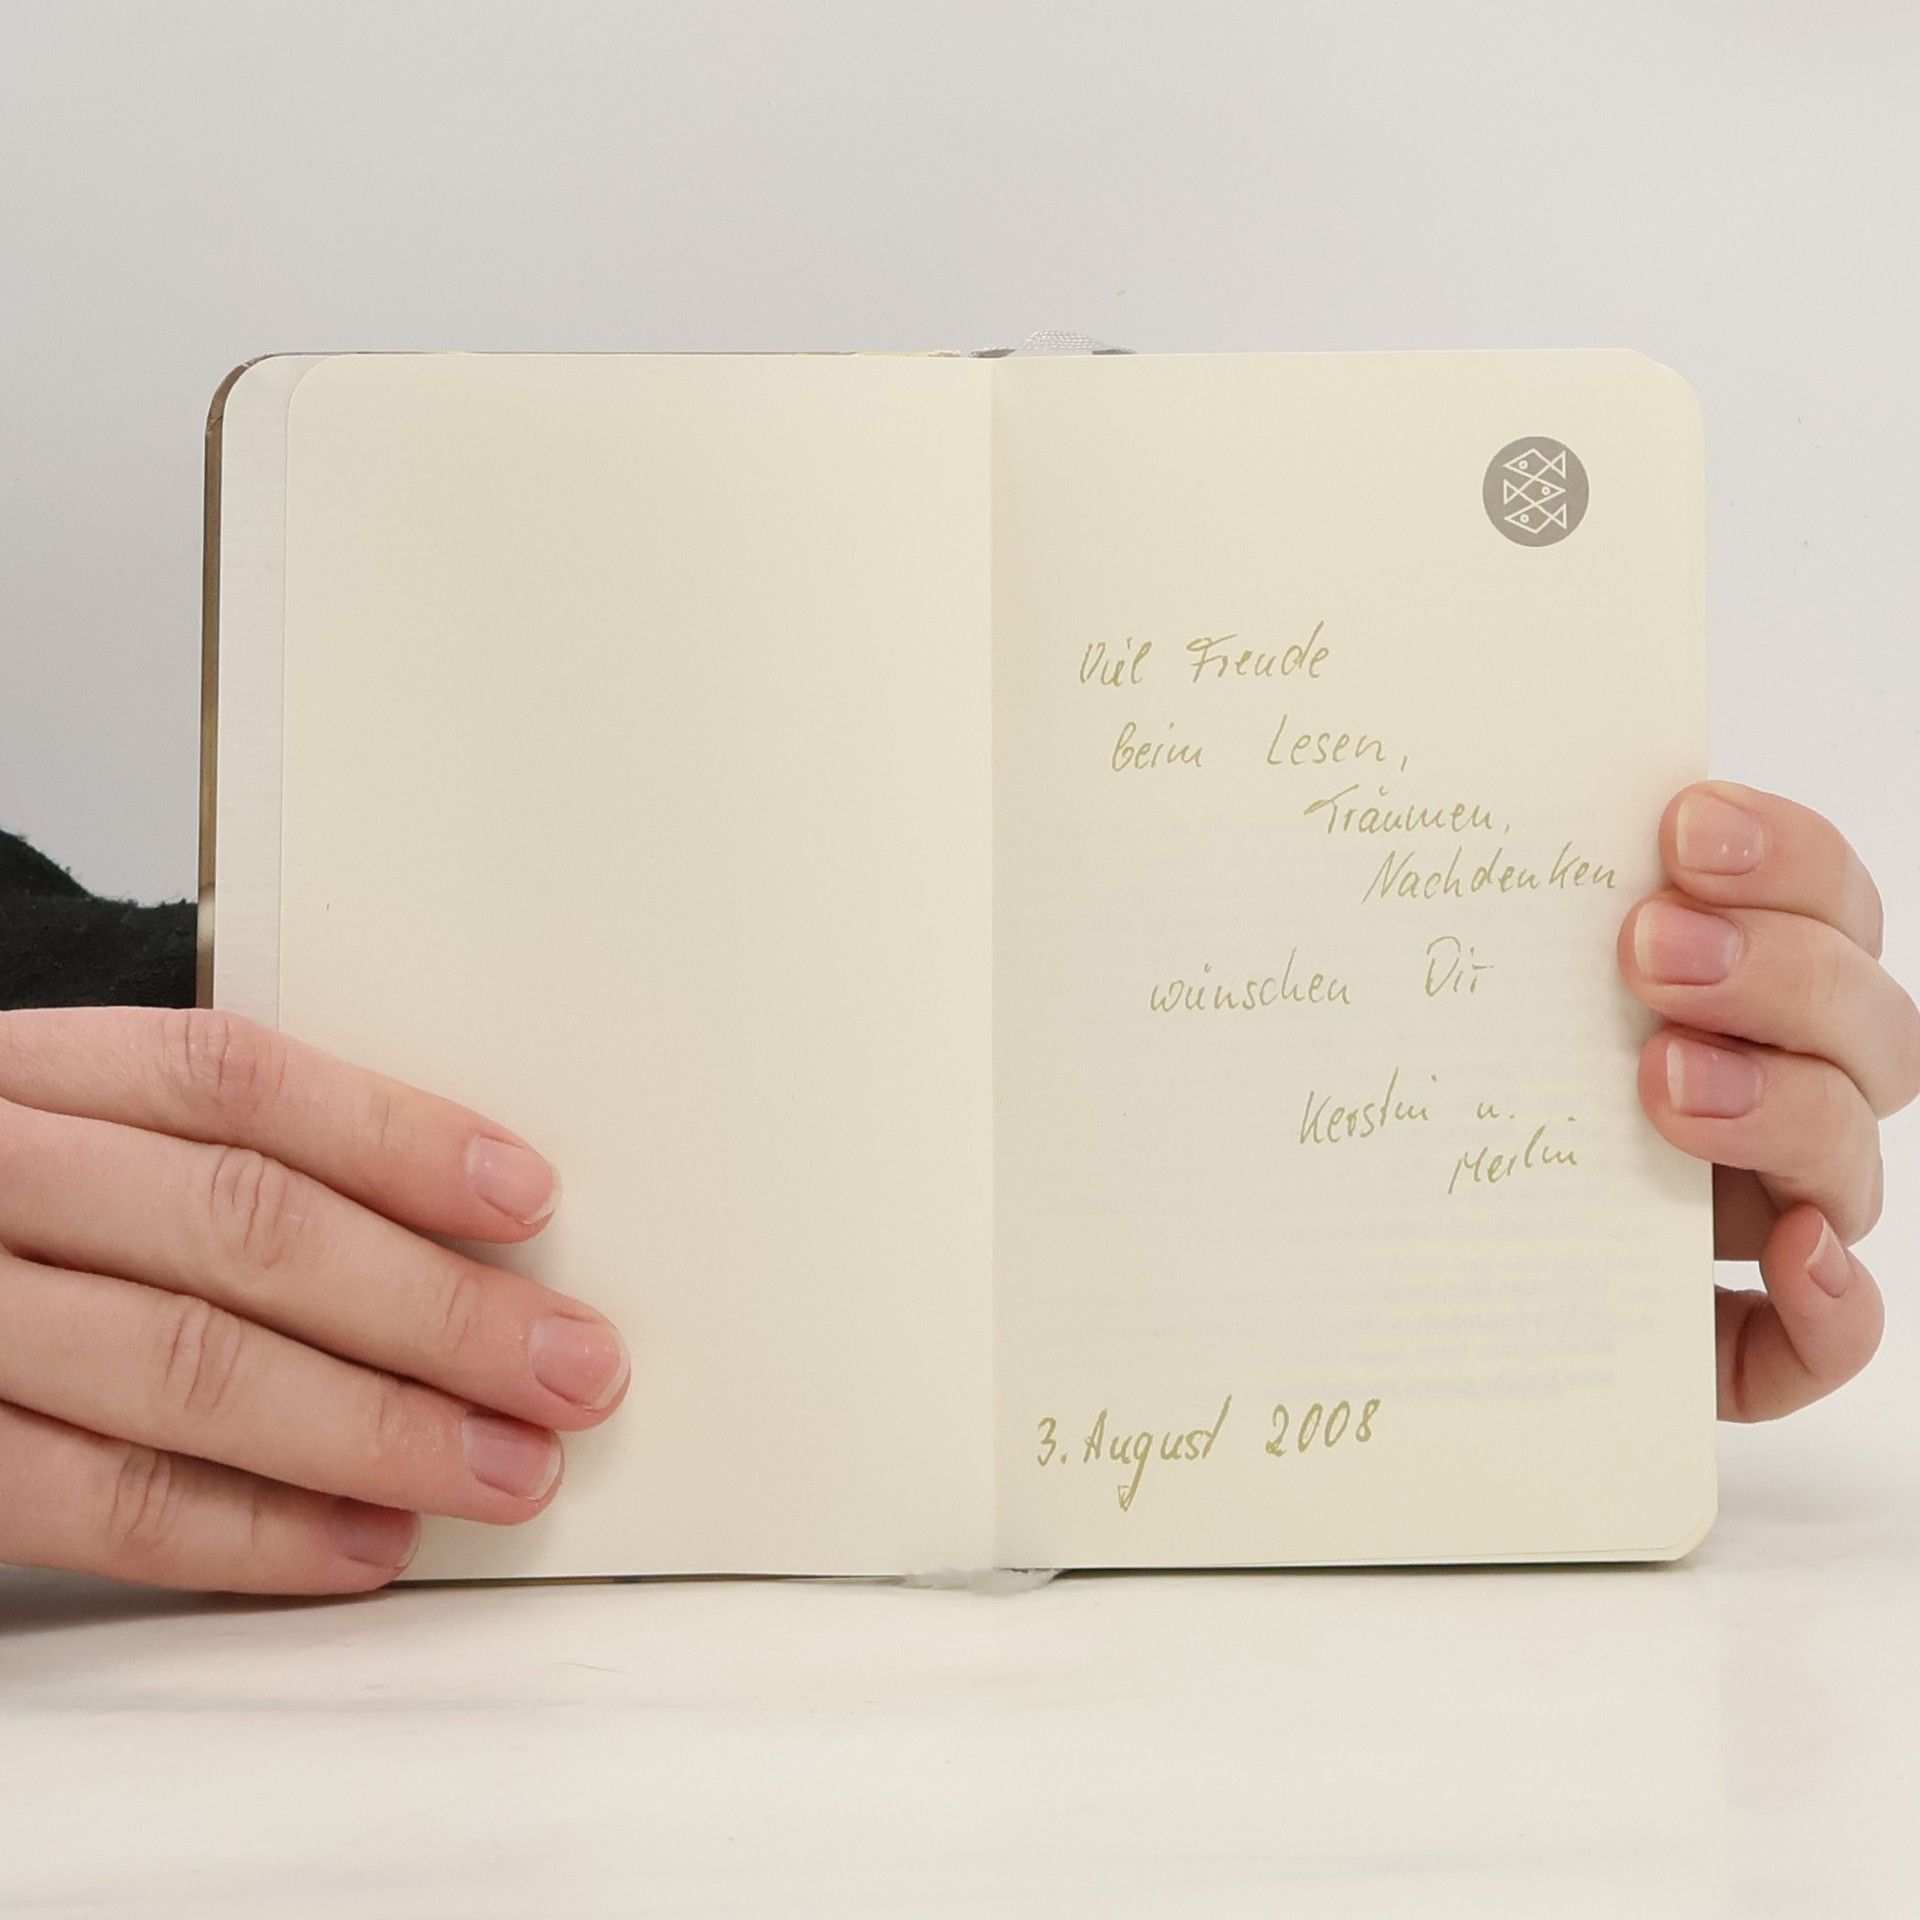 Viel Freude
beim Lesen,
Träumen,
Nachdenken
wünschen Dir
Kerstin u.
Merlin
3. August 2008